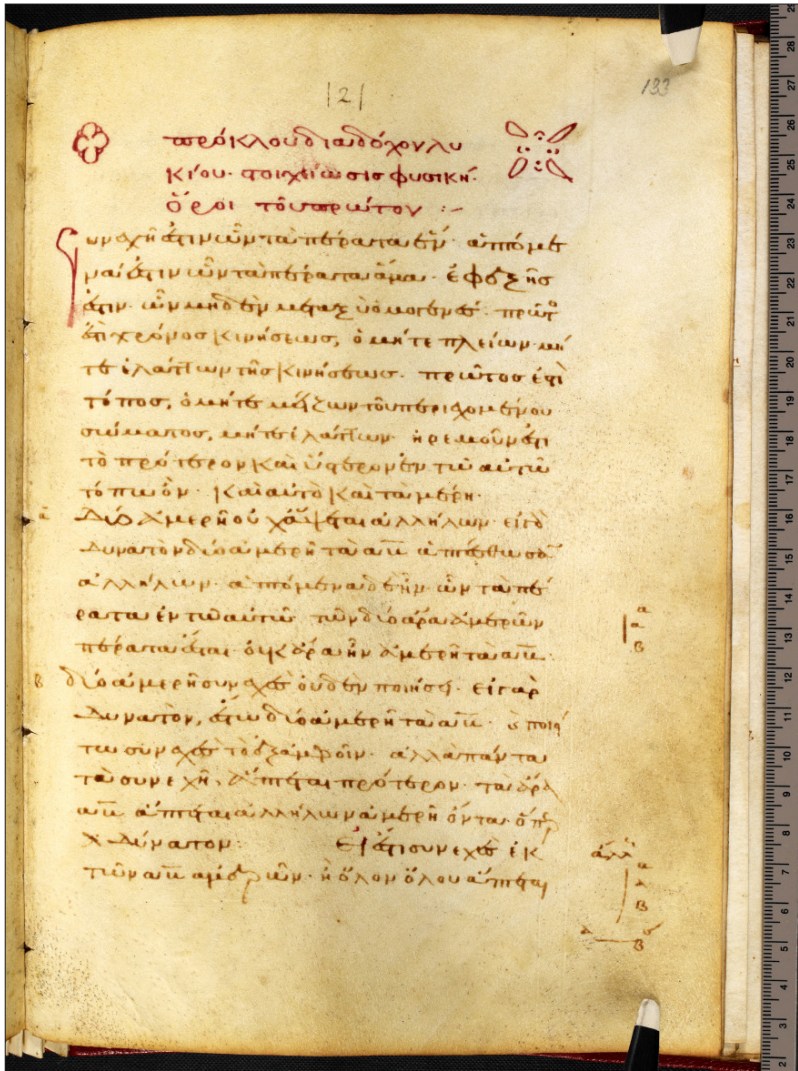 |2|
133
πρόκλου διαδόχου λυ
κίου· στοιχείωσις φυσική·
ὅροι τοῦ πρώτου :~
Συνεχῆ ἐστιν ὧν τὰ πέρατα ἕν· ἁπτόμε
ναί ἐστιν ὧν τὰ πέρατα ἅμα· ἐφεξῆς
ἐστιν· ὧν μηδὲν μεταξὺ ὁμογενές· πρῶτο
ἐστι χρόνος κινήσεως, ὁ μήτε πλείων μή
τε ἐλάττων τῆς κινήσεως· πρῶτος ἐστὶ
τόπος, ὁ μήτε μείζων τοῦ περιεχομένου
σώματος, μήτε ἐλάττων· ἠρεμοῦν ἐστι
τὸ πρότερον καὶ ὕστερον ἐν τῶ αὐτῶ
τόπω ὄν· καὶ αὐτὸ καὶ τὰ μέρη·
α Δύο ἀμερῆ οὐχ ἅψεται ἀλλήλων· εἰ γὰρ
δυνατὸν δύο ἀμερῆ τὰ αβ ἁπτέσθωσαν
ἀλλήλων· ἁπτόμενα δὲ ἦν· ὧν τὰ πέ
ρατα ἐν τῶ αὐτῶ· τῶν δύο ἄρα ἀμερῶν
πέρατα ἔσται· οὐκ ἄρα ἦν ἀμερῆ τὰ αβ·
β δύο ἀμερῆ συνεχὲς οὐδὲν ποιήσει· εἰ γὰρ
δυνατὸν, ἔστω δύο ἀμερῆ τὰ αβ· ποιεί
τω συνεχὲς τὸ ἐξ ἀμφοῖν· ἀλλὰ πάντα
τὰ συνεχῆ, ἅπτεται πρότερον· τὰ ἄρα
αβ ἅπτεται ἀλλήλων ἀμερῆ ὄντα· ὅπερ
ἀδύνατον: Εἰ ἐστι συνεχὲς ἐκ
τῶν αβ ἀμερῶν· ἢ ὅλον ὅλου ἅπτεται
α
β
α
β
β